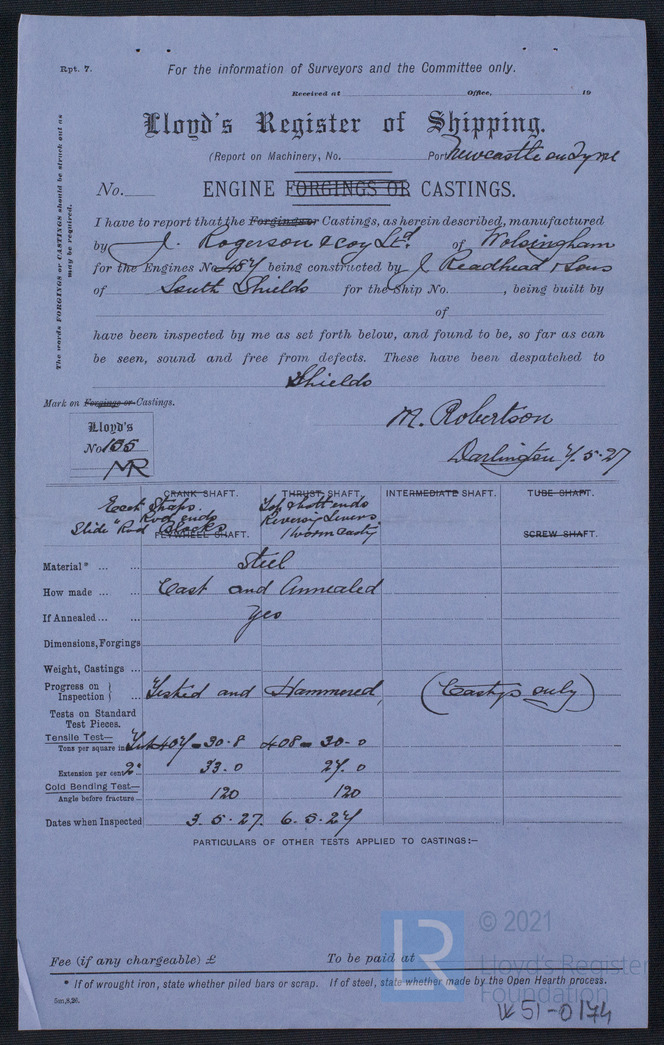 Rpt. 7.
For the information of Surveyors and the Committee only.
Received at Office, 19
Lloyd's Register of Shipping.
(Report on Machinery, No. Port Newcastle on Tyne
No.
ENGINE FORGINGS OR CASTINGS.
The words FORGINGS or CASTINGS should be struck out as
may be required.
I have to report that the Forgings or Castings, as herein described, manufactured
by J. Rogerson & Coy Ltd of Wolsingham
for the Engines No. 487 being constructed by J Readhead & Sons
of South Shields for the Ship No. , being built by
of
have been inspected by me as set forth below, and found to be, so far as can
be seen, sound and free from defects. These have been despatched to
Shields
Mark on Forgings or Castings.
Lloyd's
No 155
MR
M. Robertson
Darlington 7/5-27
CRANK SHAFT. THRUST SHAFT. INTERMEDIATE SHAFT. TUBE SHAFT.
Eccn Straps. Top & bott ends
Rod ends Reversing Levers.
Slide " Rod Blocks 1 Worm Castg
FLYWHEEL SHAFT. SCREW SHAFT.
Material* ... ... Steel
How made ... ... Cast and Annealed
If Annealed ... ... Yes
Dimensions, Forgings
Weight, Castings ...
Progress on Inspection } ... Tested and Hammered, (Castgs only)
Tests on Standard
Test Pieces.
Tensile Test—
Tons per square in. 407 = 30.8 408 = 30.0
Extension per cent 2" 33.0 27.0
Cold Bending Test—
Angle before fracture ... 120 120
Dates when Inspected 3.5.27. 6.5.27
PARTICULARS OF OTHER TESTS APPLIED TO CASTINGS:—
Fee (if any chargeable) £ To be paid at
* If of wrought iron, state whether piled bars or scrap. If of steel, state whether made by the Open Hearth process.
5m,8,26.
LR
© 2021
Lloyd's Register
Foundation
W51-0174